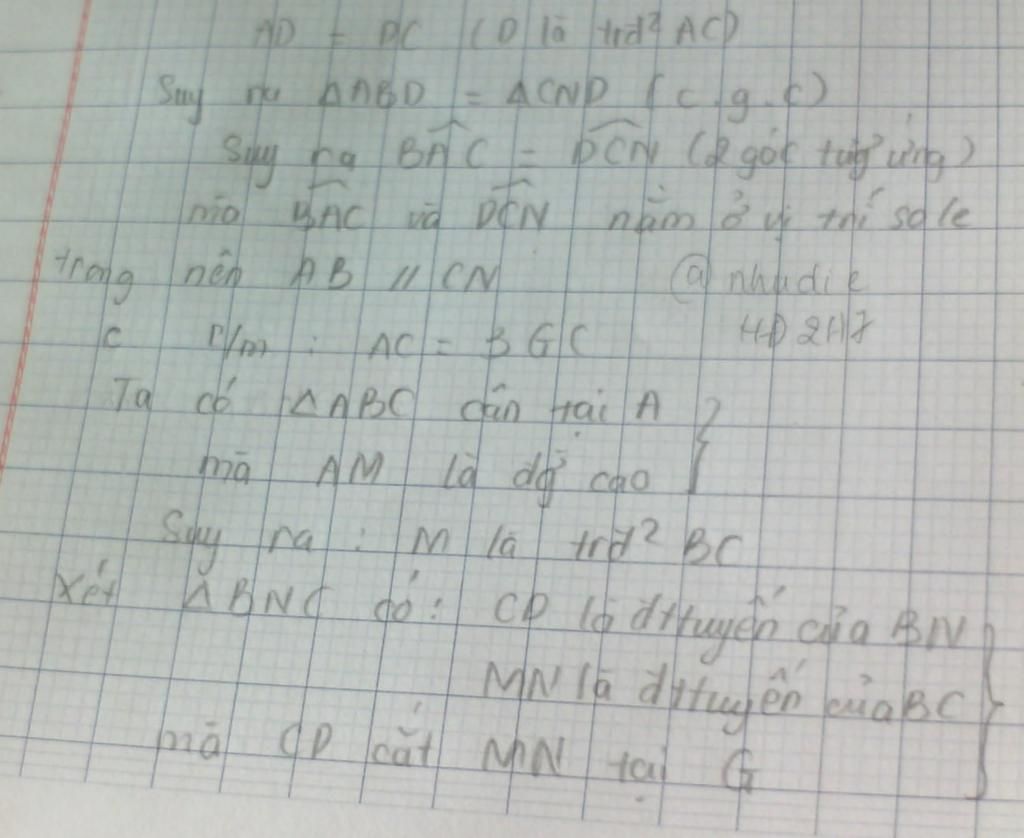 AD = DC (D là trđ² AC)
Suy ra ΔABD = ΔCND (c.g.c)
Suy ra BAC = DCN (2 góc tương ứng)
mà BAC và DCN nằm ở vị trí so le
trong nên AB // CN @ nhudie
C C/m : AC = 3GC HD 2H7
Ta có ΔABC cân tại A
mà AM là đg cao
Suy ra : M là trđ² BC
Xét ΔBNC có : CD là đttuyến của BN
MN là đttuyến của BC
mà CD cắt MN tại G